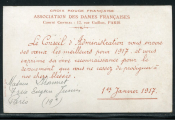 CROIX ROUGE FRANÇAISE
ASSOCIATION DES DAMES FRANÇAISES
Comité Central : 12, rue Gaillon, PARIS
Le Conseil d'Administration vous envoie
ses vœux les meilleurs pour 1917 et vous
exprime sa vive reconnaissance pour le
dévouement que vous ne cessez de prodiguer à
nos chers blessés.
1er Janvier 1917.
Madame
Paris (19e)